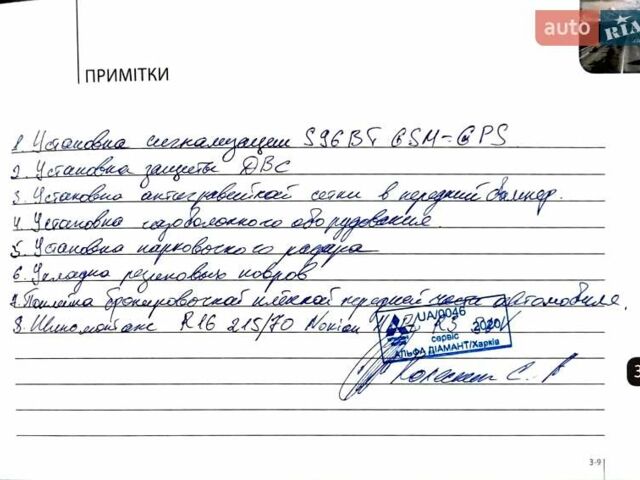 auto RIA
ПРИМІТКИ
1. Установка сигнализации S96BT GSM-GPS
2. Установка защиты ДВС
3. Установка антигравейной сетки в передний бампер.
4. Установка газобалонного оборудования.
5. Установка парковочного радара
6. Укладка резиновых ковров
7. Поклейка бронировочной плёнкой передней части автомобиля.
8. Шиномонтаж R16 215/70 Nokian
UA/0046
2020
сервіс
АЛЬФА ДІАМАНТ/Харків
3-9